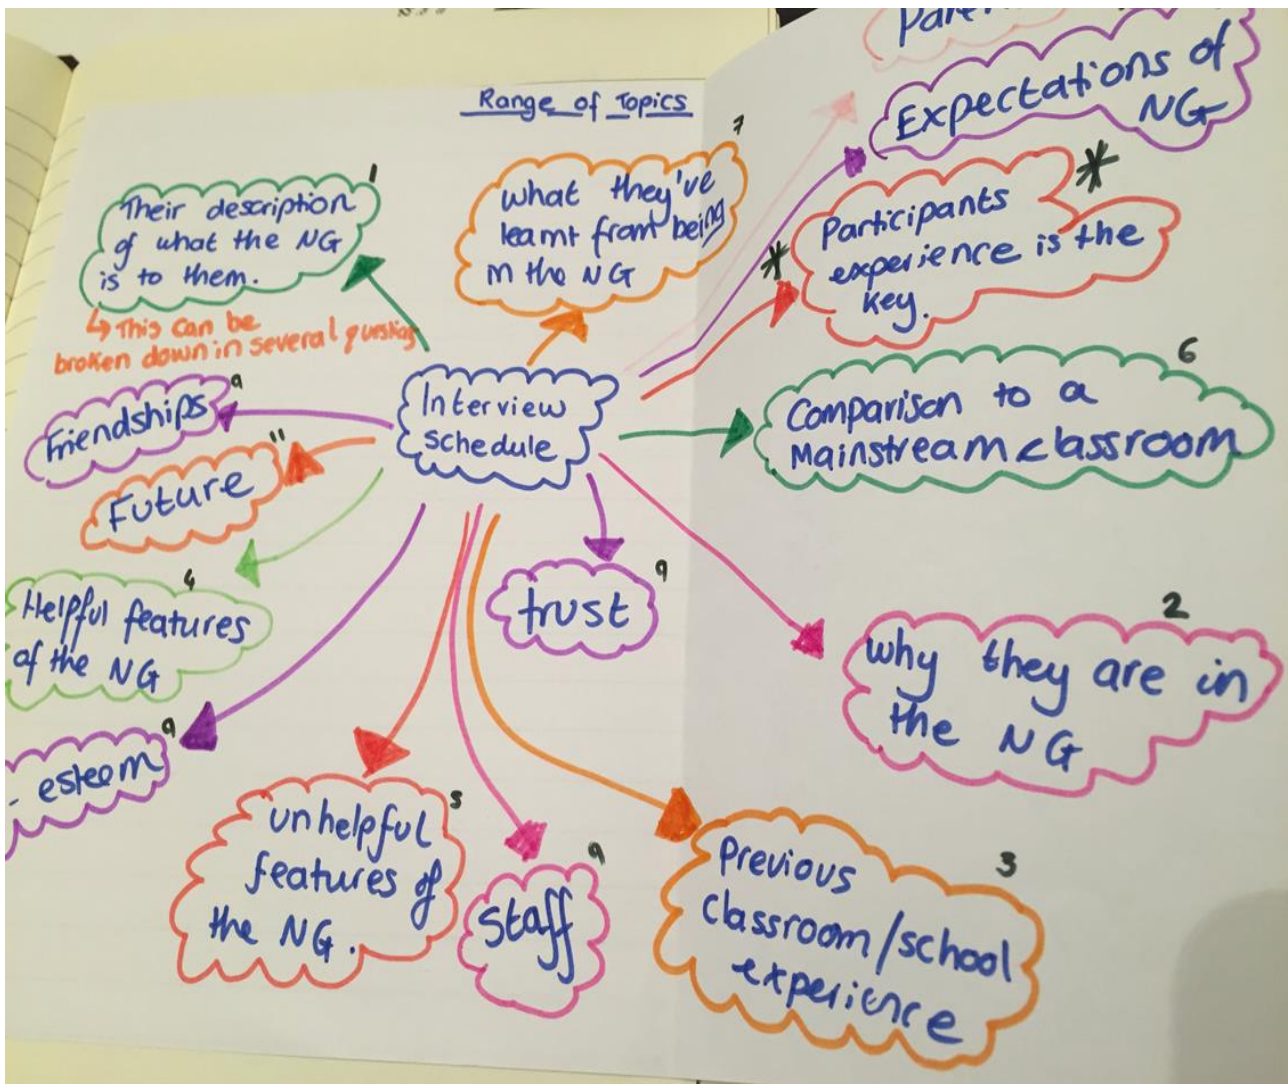 Range of Topics
1
Their description
of what the NG
is to them.
↳ This can be
broken down in several
7
what they've
learnt from being
in the NG
Expectations of
NG
*
*
Participants
experience is the
key.
Interview
schedule
6
Comparison to a
Mainstream classroom
9
Friendships
11
Future
4
Helpful features
of the NG
9
- esteem
9
trust
2
why they are in
the NG
5
unhelpful
features of
the NG.
9
Staff
3
Previous
classroom/school
experience